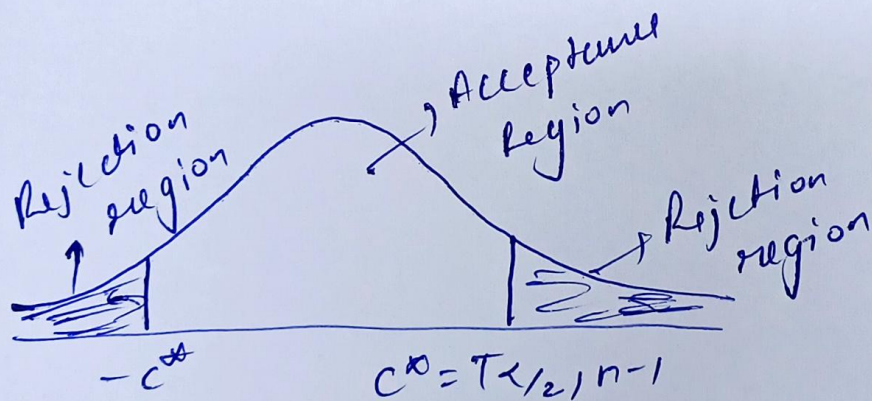 Rejection
region
Acceptance
Region
Rejction
region
-c*
c* = Tα/2, n-1